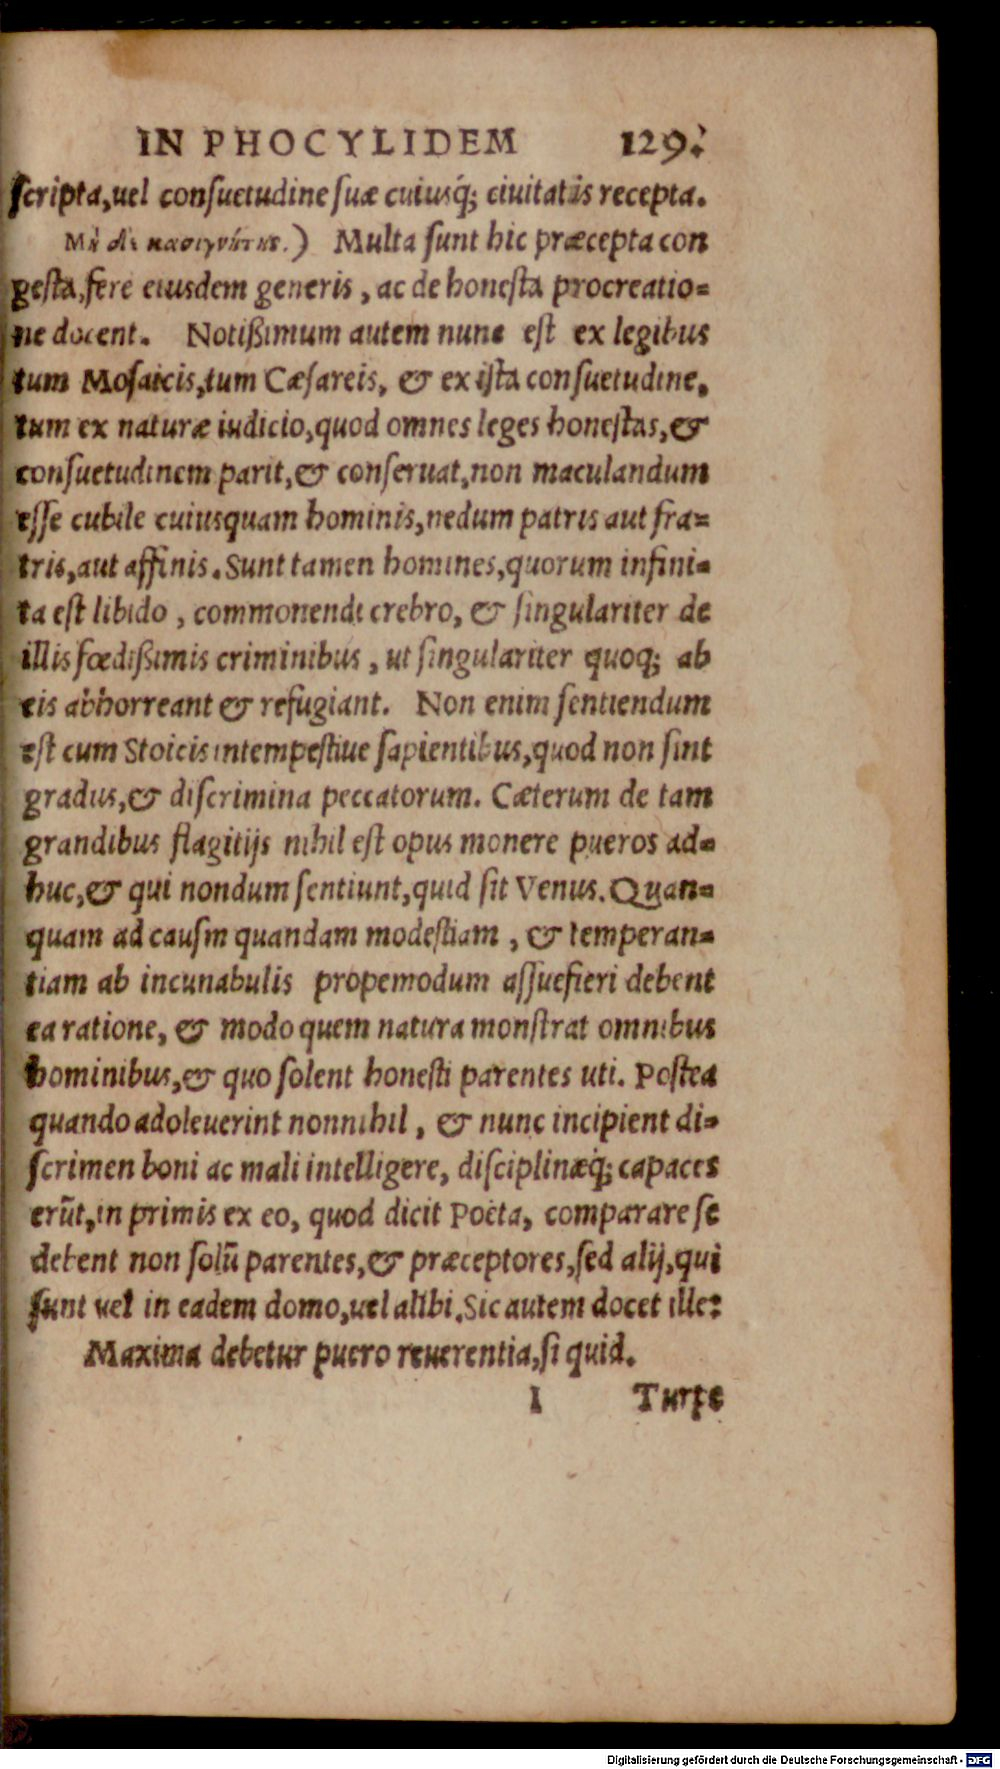 IN PHOCYLIDEM 129.
scripta,uel consuetudine suæ cuiusq́; ciuitatis recepta.
Μὴ δὲ κασιγνήτης.) Multa sunt hic præcepta con
gesta,fere eiusdem generis , ac de honesta procreatio=
ne docent. Notißimum autem nunc est ex legibus
tum Mosaicis,tum Cæsareis, & ex ista consuetudine,
tum ex naturæ iudicio,quod omnes leges honestas,&
consuetudinem parit,& conseruat,non maculandum
esse cubile cuiusquam hominis,nedum patris aut fra=
tris,aut affinis.Sunt tamen homines,quorum infini=
ta est libido , commonendi crebro, & singulariter de
illis fœdißimis criminibus , ut singulariter quoq; ab
eis abhorreant & refugiant. Non enim sentiendum
est cum Stoicis intempestiue sapientibus,quod non sint
gradus,& discrimina peccatorum. Cæterum de tam
grandibus flagitijs nihil est opus monere pueros ad=
huc,& qui nondum sentiunt,quid sit Venus.Quan=
quam ad causm quandam modestiam , & temperan=
tiam ab incunabulis propemodum assuefieri debent
ea ratione, & modo quem natura monstrat omnibus
hominibus,& quo solent honesti parentes uti. Postea
quando adoleuerint nonnihil , & nunc incipient di=
scrimen boni ac mali intelligere, disciplinæq́; capaces
erūt,in primis ex eo, quod dicit Poëta, comparare se
debent non solū parentes,& præceptores,sed alij,qui
sunt uel in eadem domo,uel alibi.Sic autem docet ille:
Maxima debetur puero reuerentia,si quid.
I Turpe
Digitalisierung gefördert durch die Deutsche Forschungsgemeinschaft - DFG